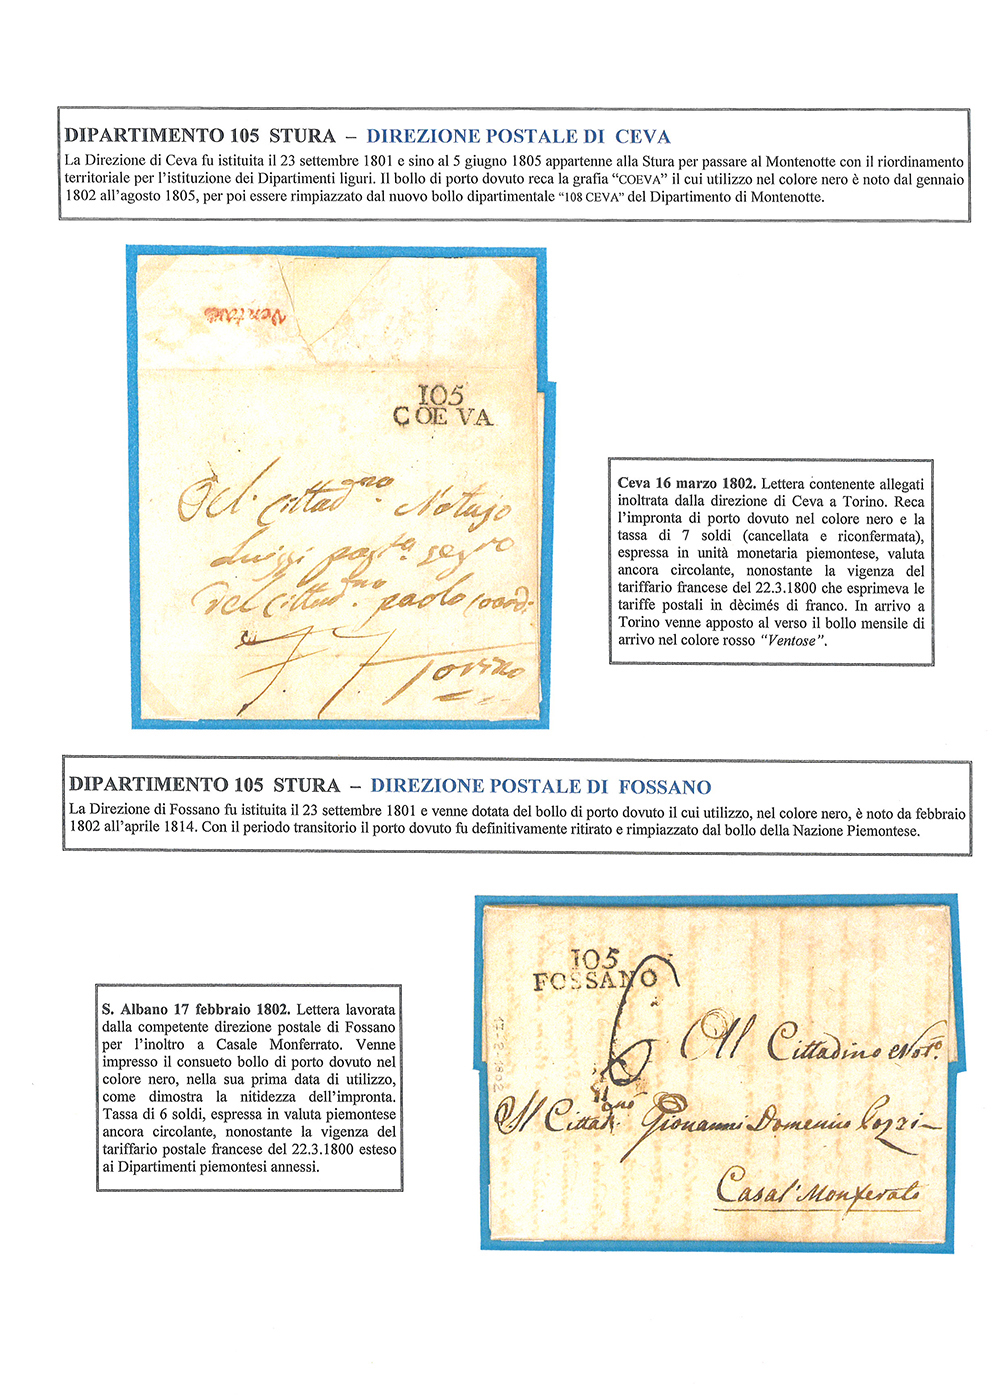 DIPARTIMENTO 105 STURA – DIREZIONE POSTALE DI CEVA
La Direzione di Ceva fu istituita il 23 settembre 1801 e sino al 5 giugno 1805 appartenne alla Stura per passare al Montenotte con il riordinamento
territoriale per l’istituzione dei Dipartimenti liguri. Il bollo di porto dovuto reca la grafia “COEVA” il cui utilizzo nel colore nero è noto dal gennaio
1802 all’agosto 1805, per poi essere rimpiazzato dal nuovo bollo dipartimentale “108 CEVA” del Dipartimento di Montenotte.
Ventose
105
COEVA
Cittad.no Notajo
Luiggi
Del Cittad.no paolo
7 Torino
Ceva 16 marzo 1802. Lettera contenente allegati
inoltrata dalla direzione di Ceva a Torino. Reca
l’impronta di porto dovuto nel colore nero e la
tassa di 7 soldi (cancellata e riconfermata),
espressa in unità monetaria piemontese, valuta
ancora circolante, nonostante la vigenza del
tariffario francese del 22.3.1800 che esprimeva le
tariffe postali in dècimés di franco. In arrivo a
Torino venne apposto al verso il bollo mensile di
arrivo nel colore rosso “Ventose”.
DIPARTIMENTO 105 STURA – DIREZIONE POSTALE DI FOSSANO
La Direzione di Fossano fu istituita il 23 settembre 1801 e venne dotata del bollo di porto dovuto il cui utilizzo, nel colore nero, è noto da febbraio
1802 all’aprile 1814. Con il periodo transitorio il porto dovuto fu definitivamente ritirato e rimpiazzato dal bollo della Nazione Piemontese.
S. Albano 17 febbraio 1802. Lettera lavorata
dalla competente direzione postale di Fossano
per l’inoltro a Casale Monferrato. Venne
impresso il consueto bollo di porto dovuto nel
colore nero, nella sua prima data di utilizzo,
come dimostra la nitidezza dell’impronta.
Tassa di 6 soldi, espressa in valuta piemontese
ancora circolante, nonostante la vigenza del
tariffario postale francese del 22.3.1800 esteso
ai Dipartimenti piemontesi annessi.
105
FOSSANO
6
17-2-1802
Al Cittadino
Il Cittad. Giovanni Domenico Pozzi
Casal' Monferato